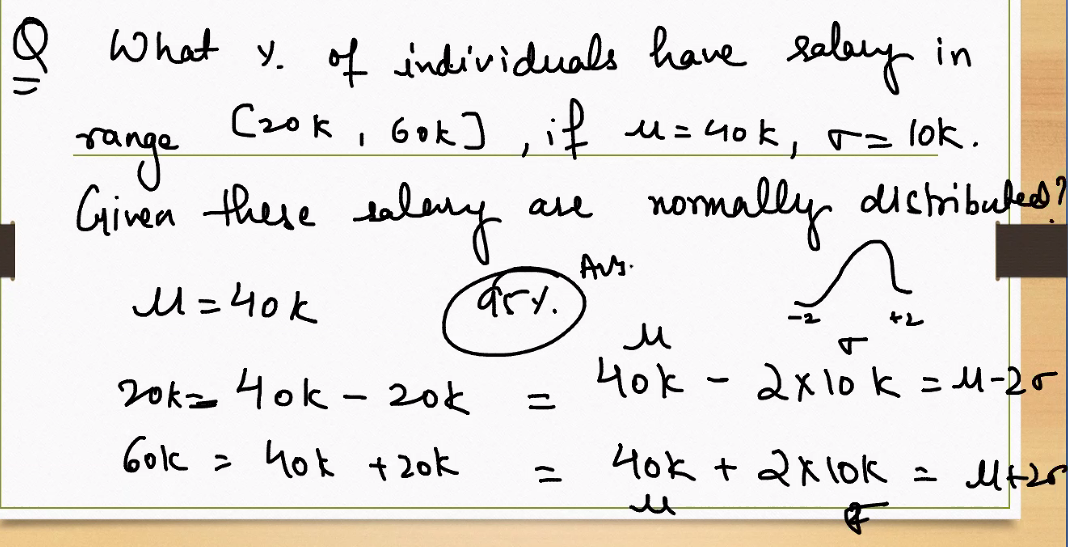 Q What %. of individuals have salary in
range [20K, 60K], if μ=40k, σ=10k.
Given these salary are normally distributed?
μ=40k 95%. Ans.
-2 +2
μ σ
20k= 40k - 20k = 40k - 2x10k = μ-2σ
60k = 40k +20k = 40k + 2x10k = μ+2σ
μ σ